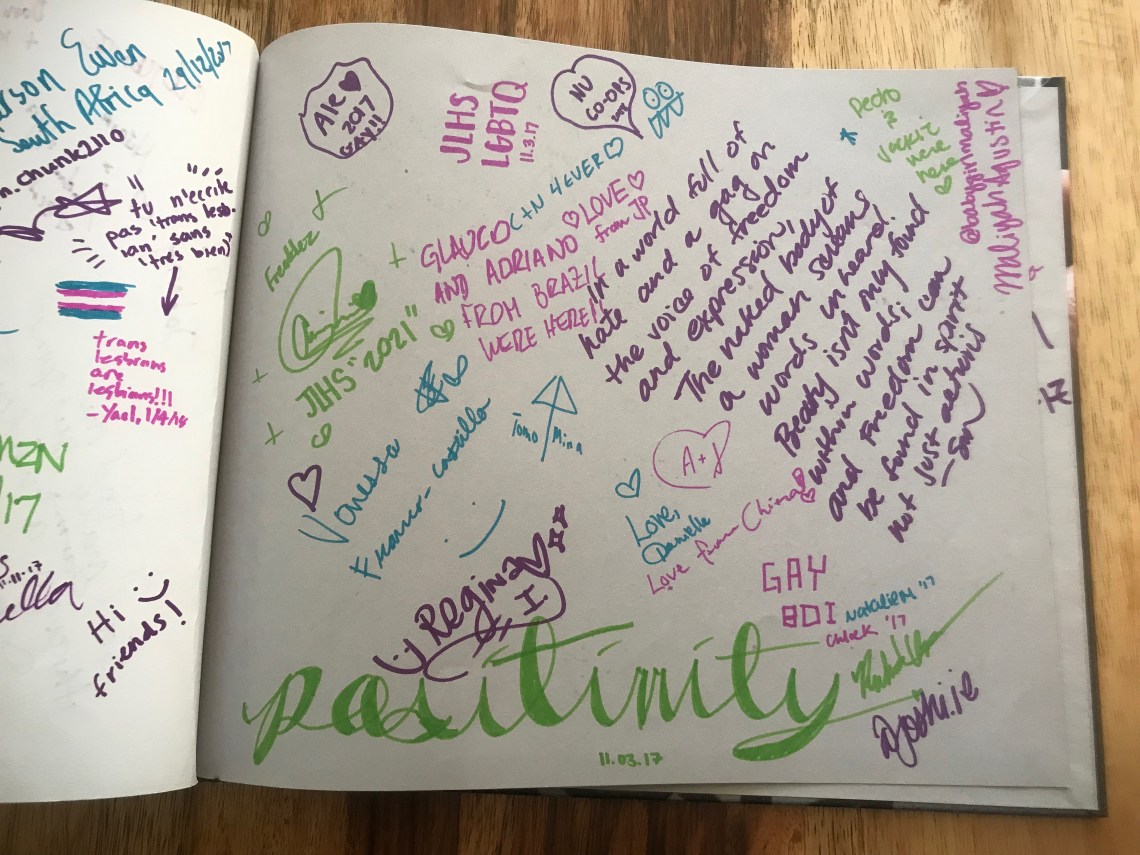 Ewen
South Africa 29/12/2017
tu n'ecrite
pas 'trans lesb-
ian' sans
'tres bien)'
trans
lesbians
are
lesbians!!!
-Yael, 1/4/18
MZN
/17
11.11.17
ella
Hi
friends!
Ale
2017
GAY!!
JLHS
LGBTQ
11.3.17
NU
CO-OPS
C+N 4EVER
Pedro
&
Jackie
were
here
@babygirlmaliyah
maliyah Agustin
GLAUCO
AND ADRIANO
FROM BRAZIL
WERE HERE!!
LOVE
from JP
In a world full of
hate and a gag on
the voice of freedom
and expression,
The naked body of
a woman screams
words unheard.
Beauty isn't only found
within words;
and Freedom can
be found in spirit
not just actions
- Sm
JLHS "2021"
Vanessa
Franco-Castillo
Tomo Mina
A+J
Love,
Danielle
Love from China
Regina
I
GAY
BDI
NatalieM '17
ChloeK '17
positivity
11.03.17
@joshi.ie